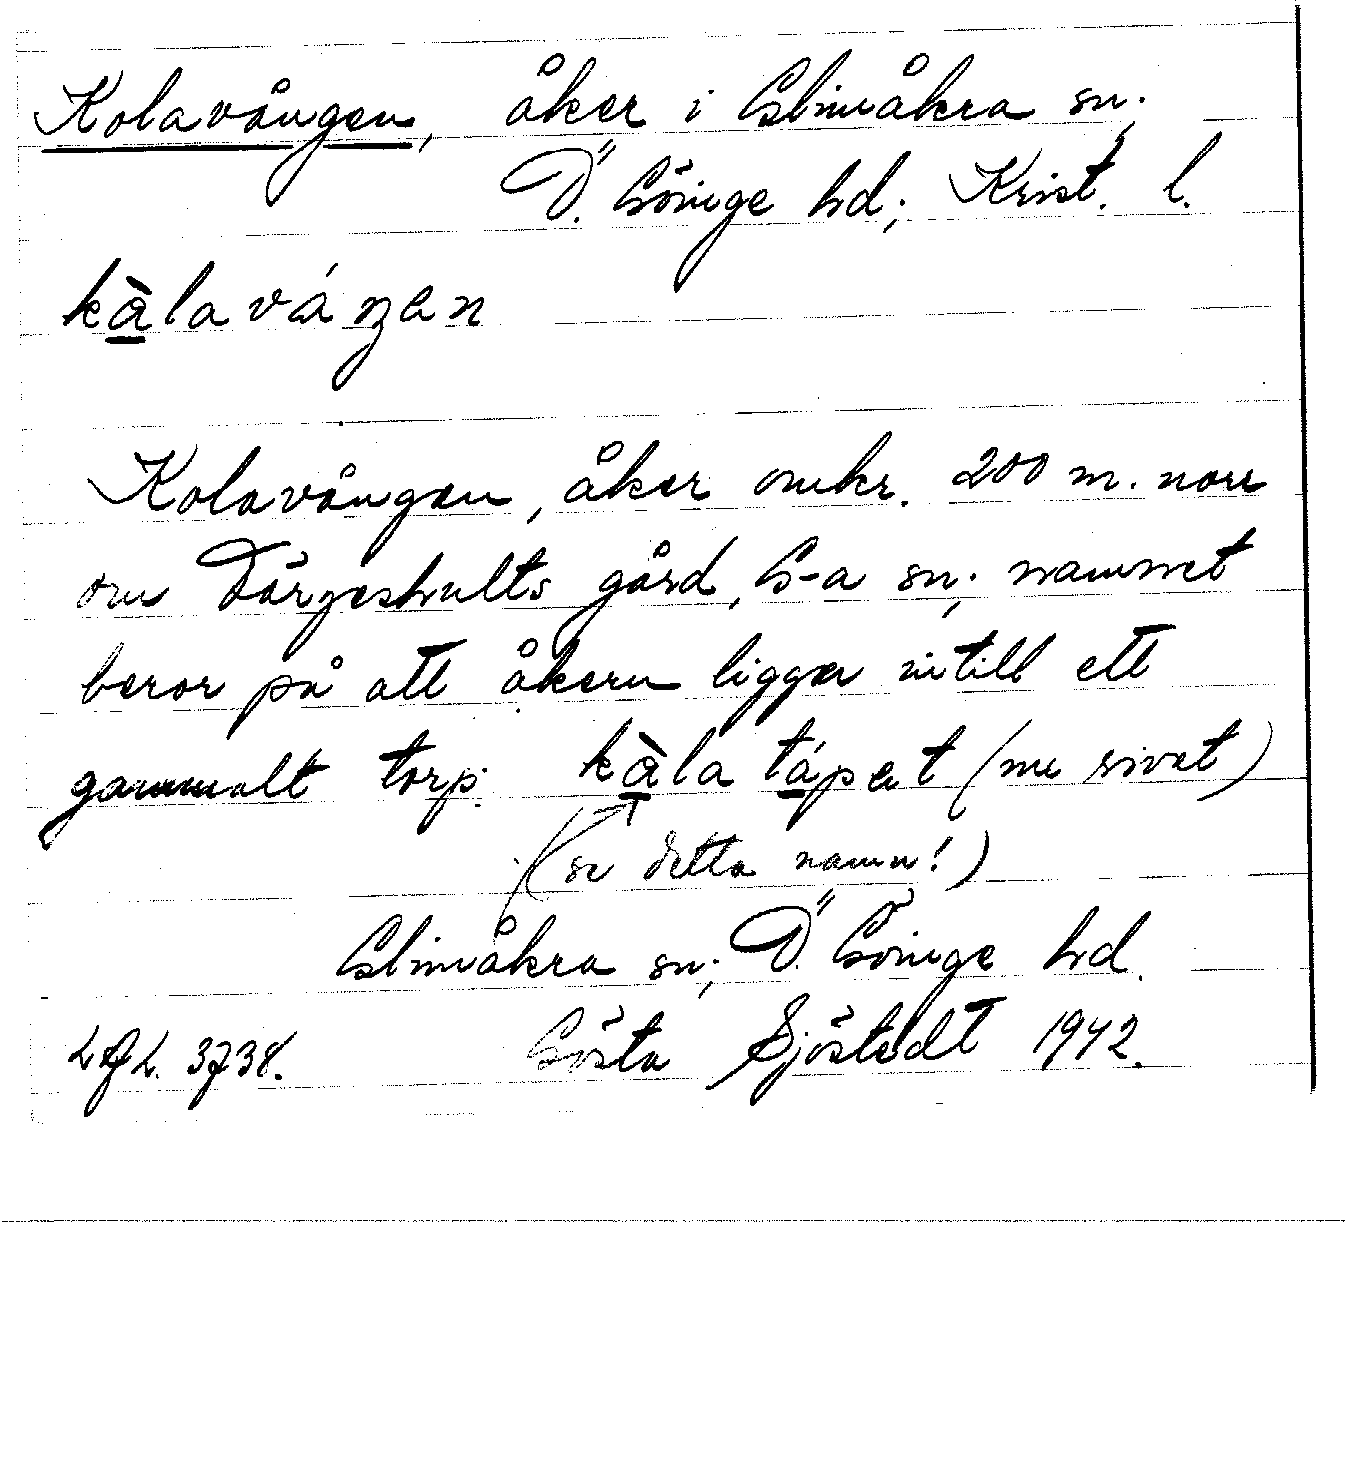 Kolavången, åker i Glimåkra sn;
Ö. Göinge hd; Krist. l.
kàlaváŋen
Kolavången, åker omkr. 200 m. norr
om Dörgeshults gård, G-a sn; namnet
beror på att åkern ligger intill ett
gammalt torp: kàla tápet (nu rivet)
(se detta namn!)
Glimåkra sn; Ö. Göinge hd.
LAL. 3738. Gösta Sjöstedt 1942.